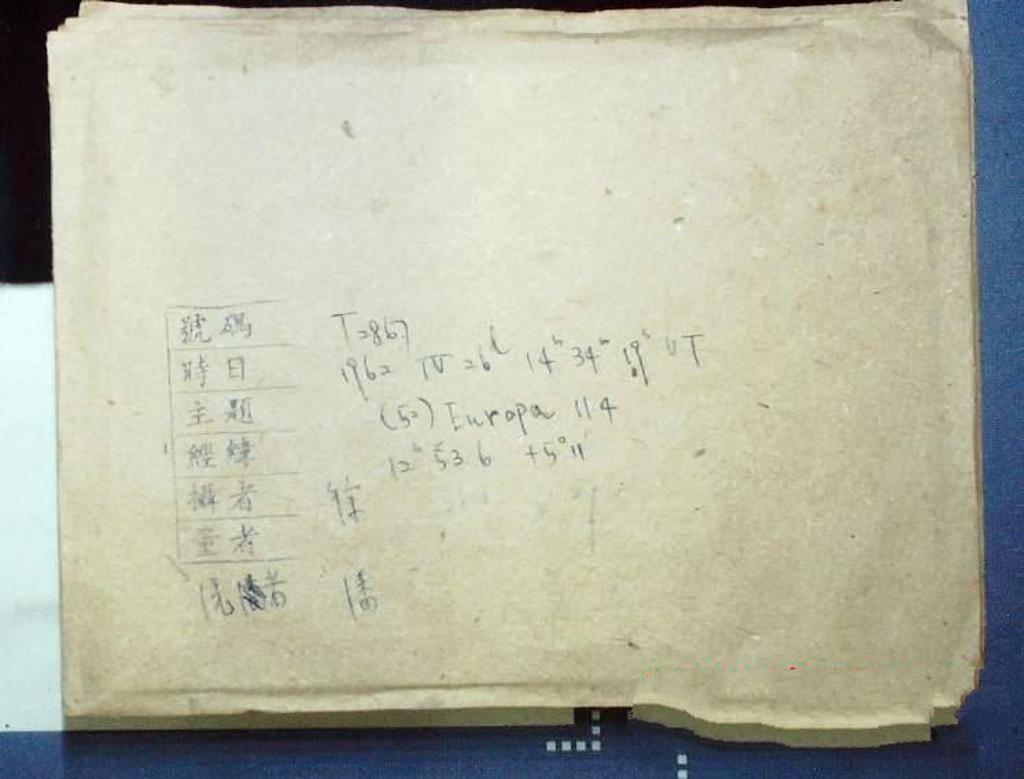 號碼 T2867
時日 1962 IV 26ᵈ 14ʰ 34ᵐ 19ˢ UT
主題 (52) Europa 11.4
經緯 12ʰ 53.6 +5°11′
攝者 徐
量者
洗者 潘